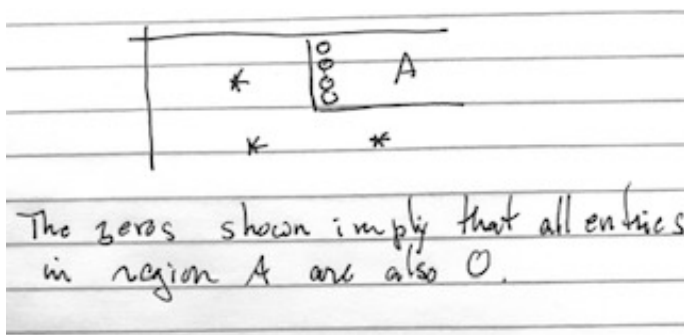 0
0
* 0 A
0
* *
The zeros shown imply that all entries
in region A are also 0.